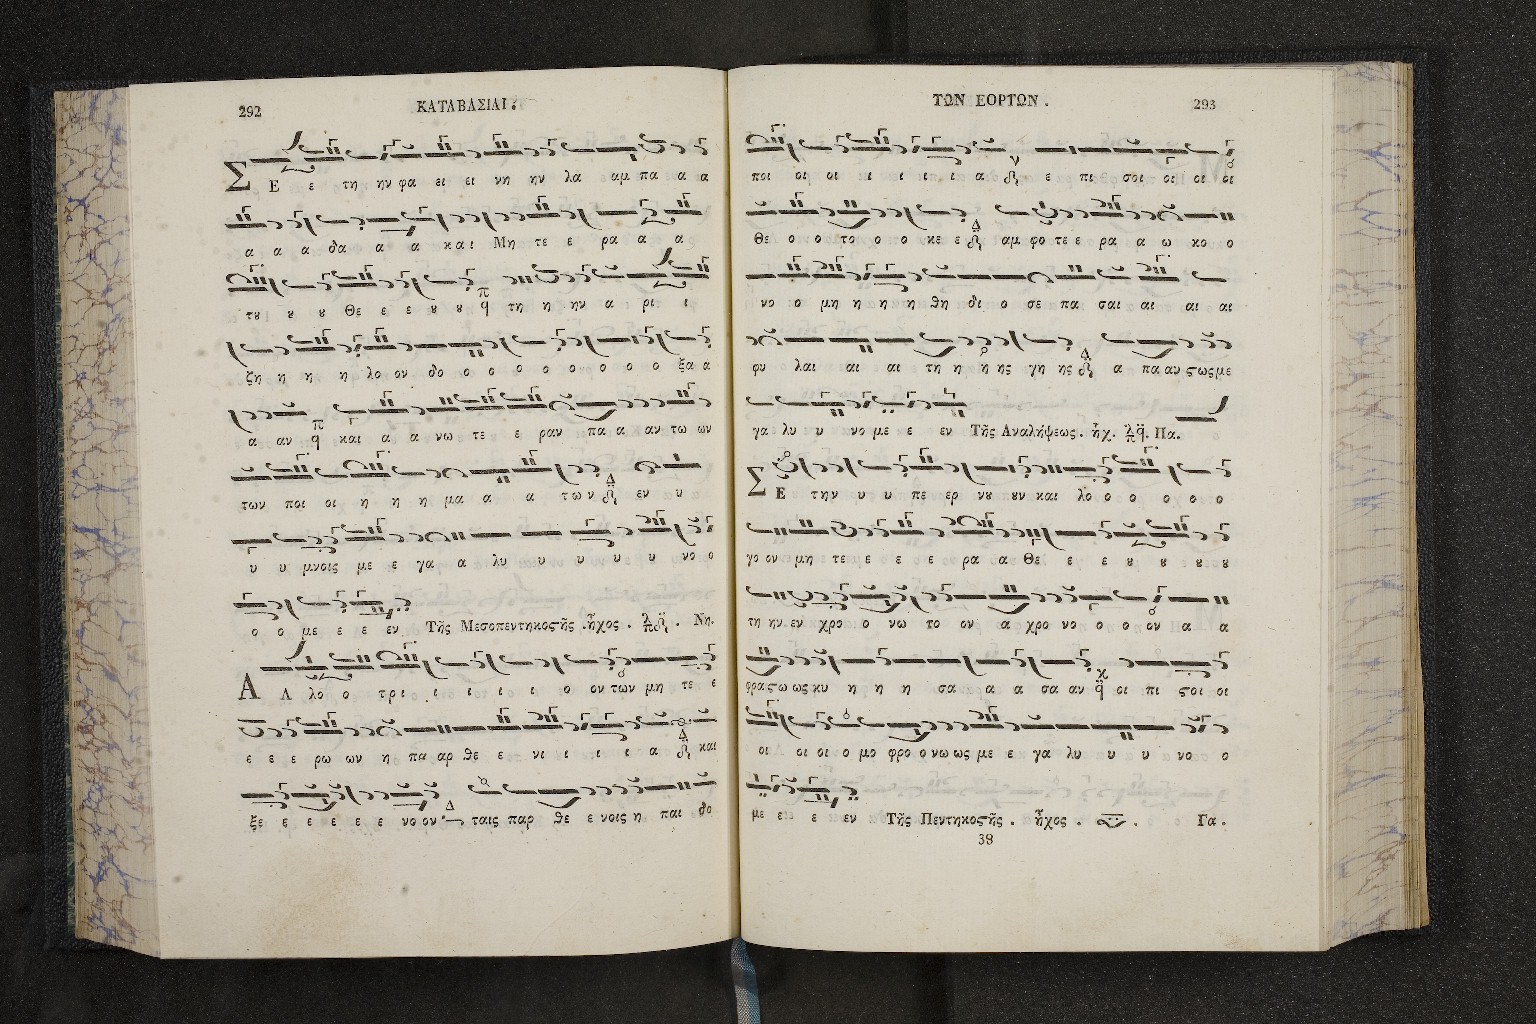 292
ΚΑΤΑΒΑΣΙΑΙ.
Σ Ε ε τη ην φα ει ει νη ην λα αμ πα α α
α α α δα α α και Μη τε ε ρα α α
τȣ ȣ ȣ Θε ε ε ȣ ȣ π q τη η ην α ρι ι
ζη η η η λο ον δο ο ο ο ο ο ο ο ο ξα α
α αν π q και α α νω τε ε ραν πα α αν τω ων
των ποι οι η η η μα α α των Δ εν υ
υ υ μνοις με ε γα α λυ υ υ υ υ νο ο
ο ο με ε ε εν Τῆς Μεσοπεντηκοϛῆς .ἦχος . λ π δ . Νη.
Α Λ λο ο τρι ι ι ι ι ι ο ον των μη τε ε
ε ε ε ρω ων η πα αρ θε ε νι ι ι ι α Δ και
ξε ε ε ε ε ε νο ον Δ ταις παρ θε ε νοις η παι δο
ΤΩΝ ΕΟΡΤΩΝ .
293
ποι οι οι ι ι ι ι α ν ε πι σοι οι οι οι
Θε ο ο το ο ο κε ε Δ αμ φο τε ε ρα α ω κο ο
νο ο μη η η η θη δι ο σε πα σαι αι αι αι
φυ λαι αι αι τη η η ης γη ης Δ α πα αυ ϛως με
γα λυ υ νο με ε εν Τῆς Αναλήψεως . ἦχ. λ π q. Πα.
Σ Ε την υ υ πε ερ νȣ ȣν και λο ο ο ο ο ο
γο ον μη τε ε ε ε ρα α Θε ε ε ȣ ȣ ȣ ȣ
τη ην εν χρο ο νω το ον α χρο νο ο ο ον α α
φρα ϛω ως κυ η η η σα α α σα αν κ q οι πι ϛοι οι
οι οι οι ο μο φρο ο νω ως με ε γα λυ υ υ υ νο ο
με ε ε εν Τῆς Πεντηκοϛῆς . ἦχος . Γα .
38